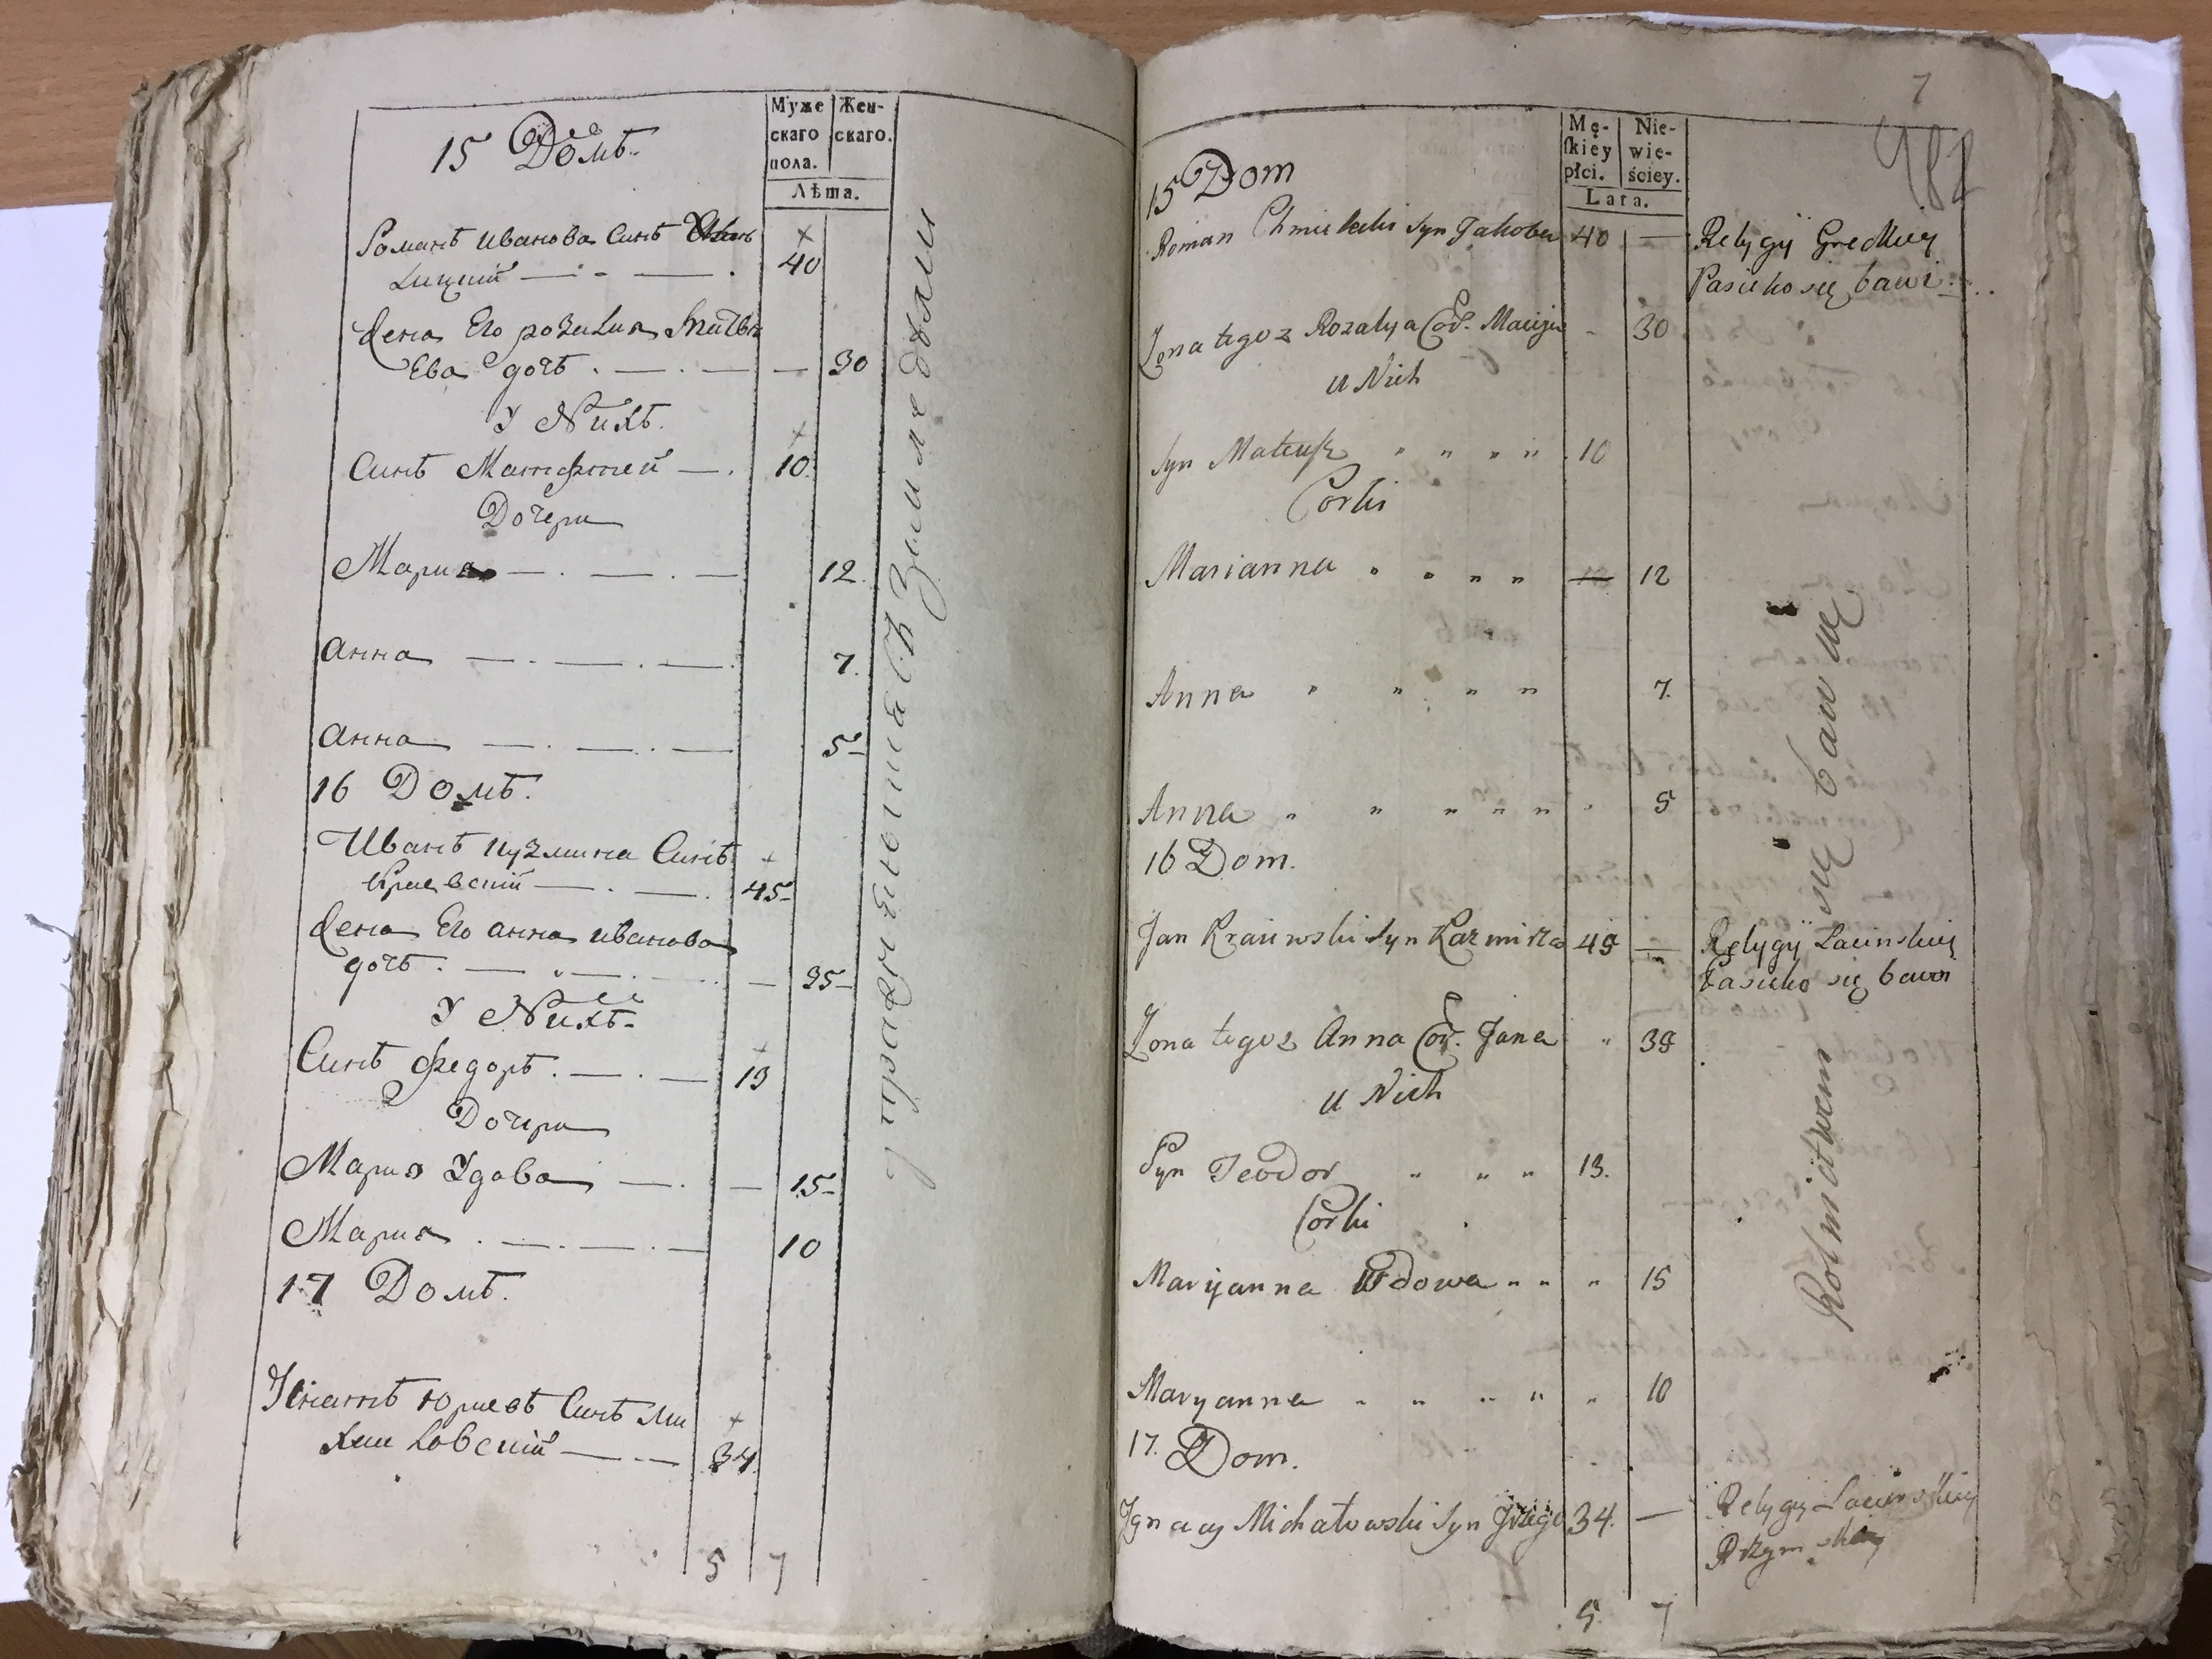 Муже
скаго
пола.
Жен-
скаго.
Лѣта.
15 Домъ.
Романъ Иванова Синъ
лицкий — 40
Жена Его розалия Матве
Ева дочъ . — . — — 30
У Нихъ.
Синъ Матфтей — . 10.
Дочери
Мария — . — . — 12.
анна — . — . — . 7.
анна — . — . — 5
16 Домъ.
Иванъ Кузмина Синъ
Краевский — . — . 45
Жена Его анна иванова
дочъ . — — . — 35
У Нихъ
Синъ Федоръ . — . — 13
Дочери
Мария Удова — . — 15
Мария . — . — . — 10
17 Домъ.
Игнатъ Юриевъ Синъ Ми
хаиловский — . — 34.
5 7
упражняются Земледѣли
7
482
Mę-
ſkiey
płci.
Nie-
wie-
ściey.
Lata.
15 Dom
Roman Chmielecki syn Jakoba 40 — Relygÿ Greckiey
Pasieko się bawi
Zona tegoz Rozalya Cór. Macieja - 30
u Nich
Syn Mateusz " " " " 10
Corki
Marianna " " " " 12
Anna " " " " 7.
Anna " " " " " 5
16 Dom.
Jan Kraiewski syn Kazmirza 45 — Relygÿ Lacinskiey
Pasieko się bawi
Zona tegoz Anna Cór. Jana " 35
u Nich
Syn Teodor " " " 13.
Córki
Maryanna Wdowa " " " 15
Maryanna " " " " " 10
17. Dom.
Jgnacy Michałowski syn 34. — Relygÿ Lacinskiey
Rzymskiey
5. 7
Rolnictwem się bawią